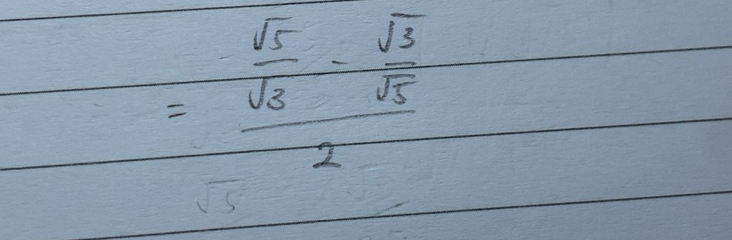 = (√5/√3 - √3/√5)/2
√5